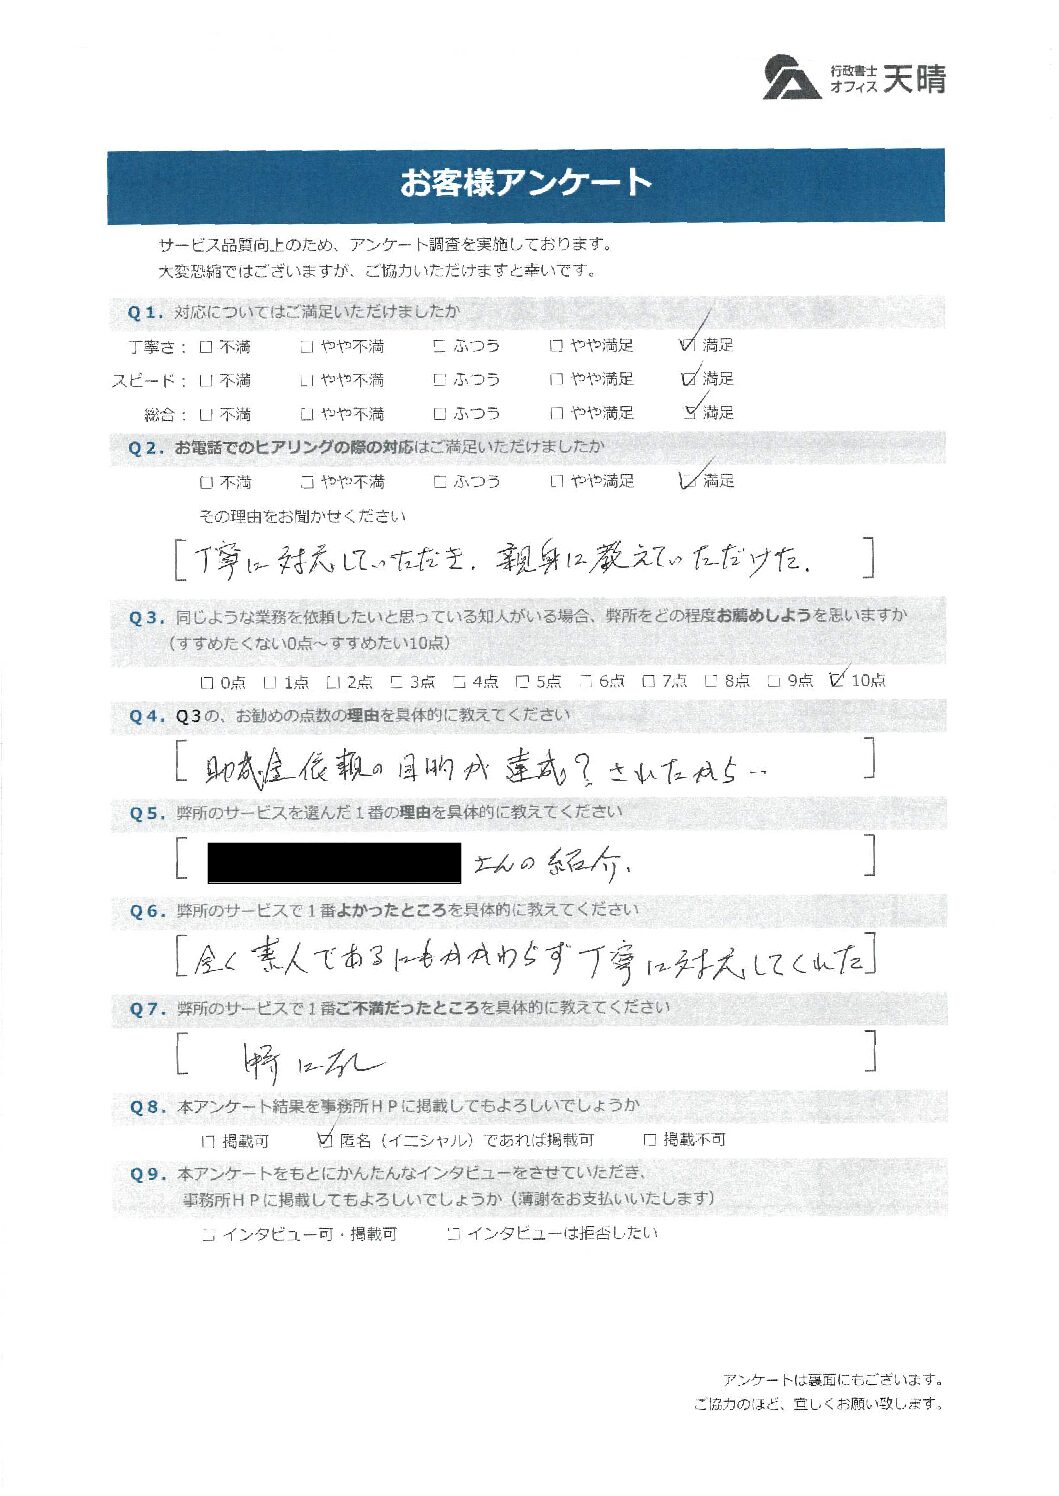 行政書士
オフィス 天晴
お客様アンケート
サービス品質向上のため、アンケート調査を実施しております。
大変恐縮ではございますが、ご協力いただけますと幸いです。
Q1. 対応についてはご満足いただけましたか
丁寧さ: □ 不満 □ やや不満 □ ふつう □ やや満足 ☑ 満足
スピード: □ 不満 □ やや不満 □ ふつう □ やや満足 ☑ 満足
総合: □ 不満 □ やや不満 □ ふつう □ やや満足 ☑ 満足
Q2. お電話でのヒアリングの際の対応はご満足いただけましたか
□ 不満 □ やや不満 □ ふつう □ やや満足 ☑ 満足
その理由をお聞かせください
[丁寧に対応していただき、親身に教えていただけた。]
Q3. 同じような業務を依頼したいと思っている知人がいる場合、弊所をどの程度お薦めしようを思いますか
(すすめたくない0点～すすめたい10点)
□ 0点 □ 1点 □ 2点 □ 3点 □ 4点 □ 5点 □ 6点 □ 7点 □ 8点 □ 9点 ☑ 10点
Q4. Q3の、お勧めの点数の理由を具体的に教えてください
[助成金依頼の目的が達成?されたから..]
Q5. 弊所のサービスを選んだ1番の理由を具体的に教えてください
[さんの紹介.]
Q6. 弊所のサービスで1番よかったところを具体的に教えてください
[全く素人であるにもかかわらず丁寧に対応してくれた]
Q7. 弊所のサービスで1番ご不満だったところを具体的に教えてください
[特になし]
Q8. 本アンケート結果を事務所HPに掲載してもよろしいでしょうか
□ 掲載可 ☑ 匿名(イニシャル)であれば掲載可 □ 掲載不可
Q9. 本アンケートをもとにかんたんなインタビューをさせていただき、
事務所HPに掲載してもよろしいでしょうか(薄謝をお支払いいたします)
□ インタビュー可・掲載可 □ インタビューは拒否したい
アンケートは裏面にもございます。
ご協力のほど、宜しくお願い致します。